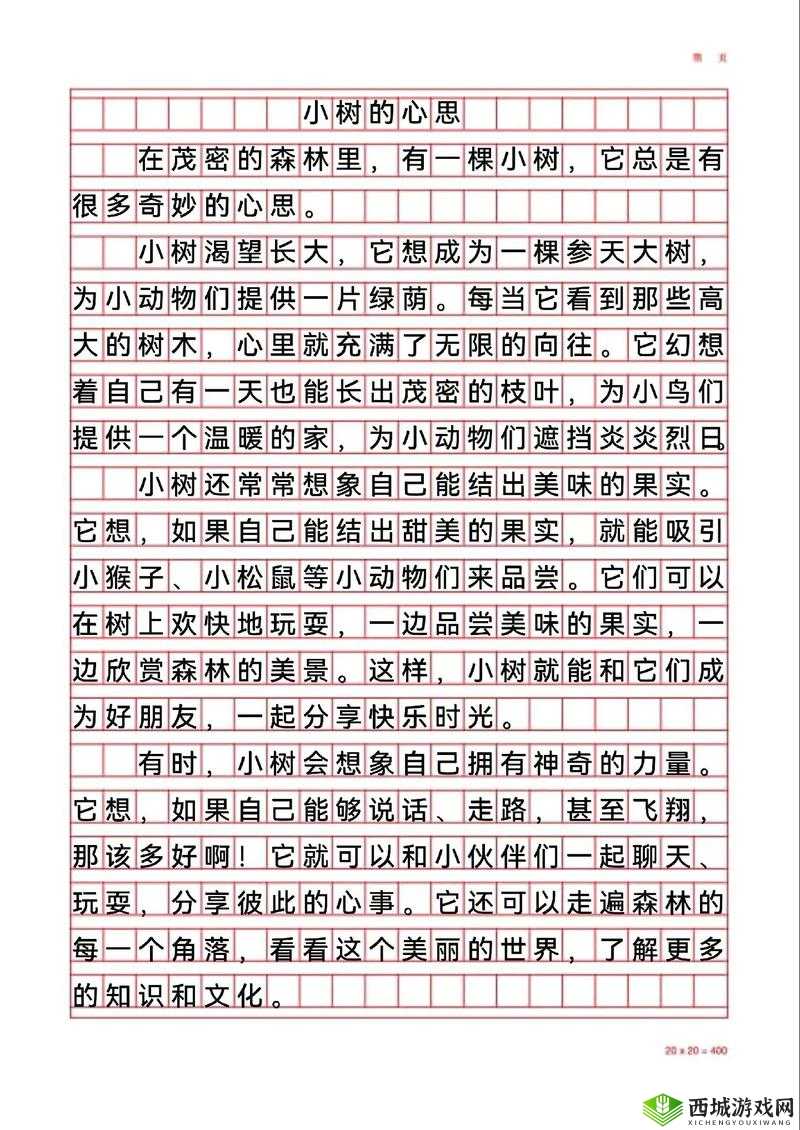 第 页
小树的心思
在茂密的森林里，有一棵小树，它总是有
很多奇妙的心思。
小树渴望长大，它想成为一棵参天大树，
为小动物们提供一片绿荫。每当它看到那些高
大的树木，心里就充满了无限的向往。它幻想
着自己有一天也能长出茂密的枝叶，为小鸟们
提供一个温暖的家，为小动物们遮挡炎炎烈日。
小树还常常想象自己能结出美味的果实。
它想，如果自己能结出甜美的果实，就能吸引
小猴子、小松鼠等小动物们来品尝。它们可以
在树上欢快地玩耍，一边品尝美味的果实，一
边欣赏森林的美景。这样，小树就能和它们成
为好朋友，一起分享快乐时光。
有时，小树会想象自己拥有神奇的力量。
它想，如果自己能够说话、走路，甚至飞翔，
那该多好啊！它就可以和小伙伴们一起聊天、
玩耍，分享彼此的心事。它还可以走遍森林的
每一个角落，看看这个美丽的世界，了解更多
的知识和文化。
20 x 20 = 400
西城游戏网
XICHENGYOUXIWANG